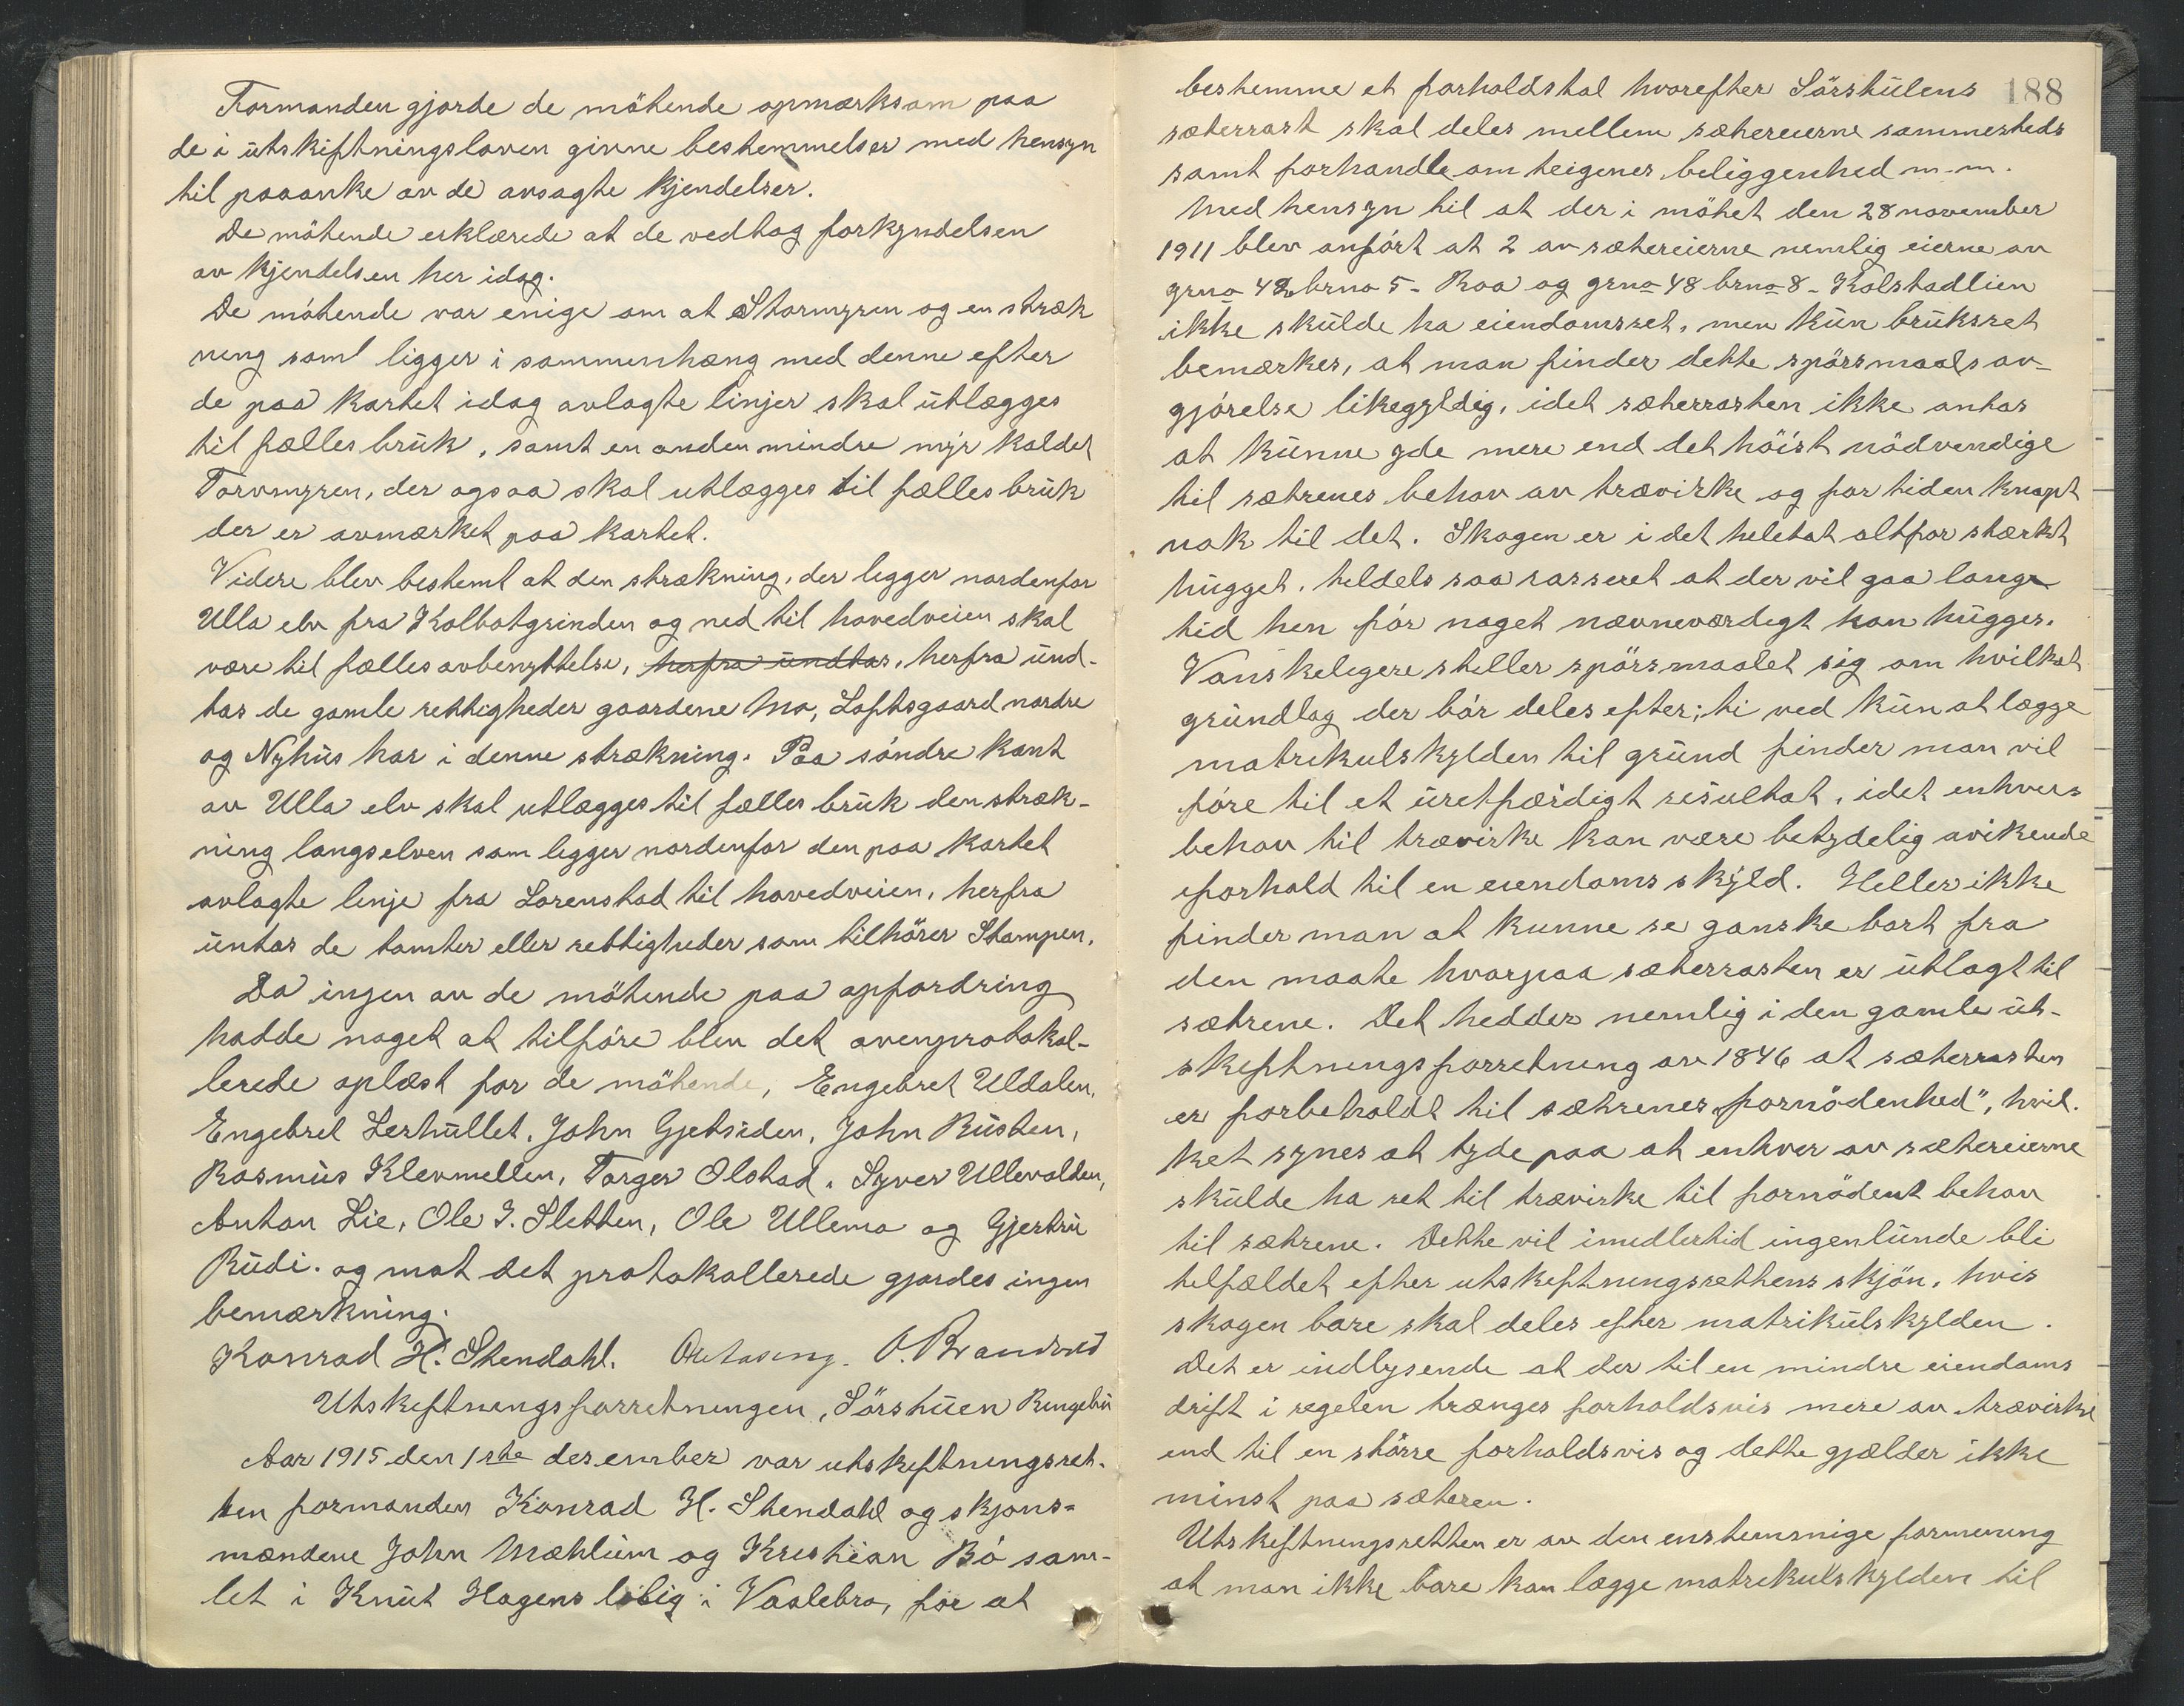 Formanden gjorde de mötende opmærksom paa
de i utskiftningsloven givne bestemmelser med hensyn
til paaanke av de avsagte kjendelser.
De mötende erklærede at de vedtog forkyndelsen
av kjendelsen her idag.
De mötende var enige om at Stormyren og en stræk
ning saml ligger i sammenhæng med denne efter
de paa kartet idag avlagte linjer skal utlægges
til fælles bruk, samt en anden mindre myr kaldet
Torvmyren, der ogsaa skal utlægges til fælles bruk
der er avmærket paa kartet.
Videre blev bestemt at den strækning, der legger nordenfor
Ulla elv fra Kolbotgrinden og ned til hovedveien skal
være til fælles avbenyttelse, herfra undtas, herfra und-
tas de gamle rettigheder gaardene Mo, Loftsgaard nordre
og Nyhus har i denne strækning. Paa söndre kant
av Ulla elv skal utlægges til fælles bruk den stræk-
ning langs elven som legger nordenfor den paa kartet
avlagte linje fra Lorenstad til hovedveien, herfra
untas de tomter eller rettigheder som tilhörer Stampen.
Da ingen av de mötende paa opfordring
hadde noget at tilföre blev det ovenprotokol-
lerede oplæst for de mötende, Engebret Uldalen,
Engebret Lerhullet, John Gjetsiden, John Rusten,
Rasmus Klevmellen, Torger Olstad, Syver Ullevolden,
Anton Lie, Ole J. Sletten, Ole Ullemo og Gjertru
Rudi. og mot det protokollerede gjordes ingen
bemærkning.
Konrad H. Stendahl. O. Brandvol
Utskeftnengsforretnengen, Sörshuen Rengebu
Aar 1915 den 1ste desember var utskeftnengsret-
ten formanden Konrad H. Stendahl og skjöns-
mændene John Mæhlum og Kristian Bö sam-
let i Knut Hagens lolig i Vaalebro, for at
188
bestemme et forholdstal hvorefter Sörshulens
sæterrast skal deles mellem sætereierne sammesteds
samt forhandle om teigenes beliggenhed m. m.
Med hensyn til at der i mötet den 28 november
1911 blev anfört at 2 av sætereierne nemlig eierne av
grno 42 brno 5 - Roa og grno 48 brno 8 - Kolstadlien
ikke skulde ha eiendomsret, men kun bruksret
bemærkes, at man finder dette spörsmaals av-
gjörelse likegyldig, idet sæterrasten ikke antas
at kunne yde mere end det höist nödvendige
til sætrenes behov av trævirke og for tiden knapt
nok til det. Skogen er i det heletat altfor stærkt
hugget, teldels saa rasseret at der vil gaa lange
tid hen för noget nævneværdigt kan hugges.
Vanskeligere steller spörsmaalet sig om hvilket
grundlag der bör deles efter; ti ved kun at lægge
matrekulskylden til grund finder man vil
före til et uretfærdigt resultat, idet enhvers
behov til trævirke kan være betydelig avikende
iforhold til en eiendoms skyld. Heller ikke
finder man at kunne se ganske bort fra
den maate hvorpaa sæterrasten er utlagt til
sætrene. Det hedder nemlig i den gamle ut-
skeftnengsforretneng av 1846 at sæterrasten
er forbeholdt til sætrenes "fornödenhed", hvil-
ket synes at tyde paa at enhver av sætereierne
skulde ha ret til trævirke til fornödent behov
til sætrene. Dette vil imedlertid ingenlunde bli
telfældet efter utskeftnengsrettens skjön, hvis
skogen bare skal deles efter matrikulskylden.
Det er indlysende at der til en mindre eiendoms
drift i regelen trænges forholdsvis mere av trævirke
end til en större forholdsvis og dette gjælder ikke
minst paa sæteren.
Utskeftnengsretten er av den enstemmige formening
at man ikke bare kan lægge matrekulskylden til